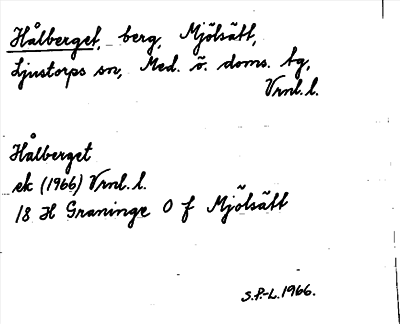 Hålberget, berg, Mjölsätt,
Ljustorps sn, Med. ö. doms. tg,
Vrnl. l.
Hålberget
ek (1966) Vrnl. l.
18 H Graninge O f Mjölsätt
S.P.-L. 1966.